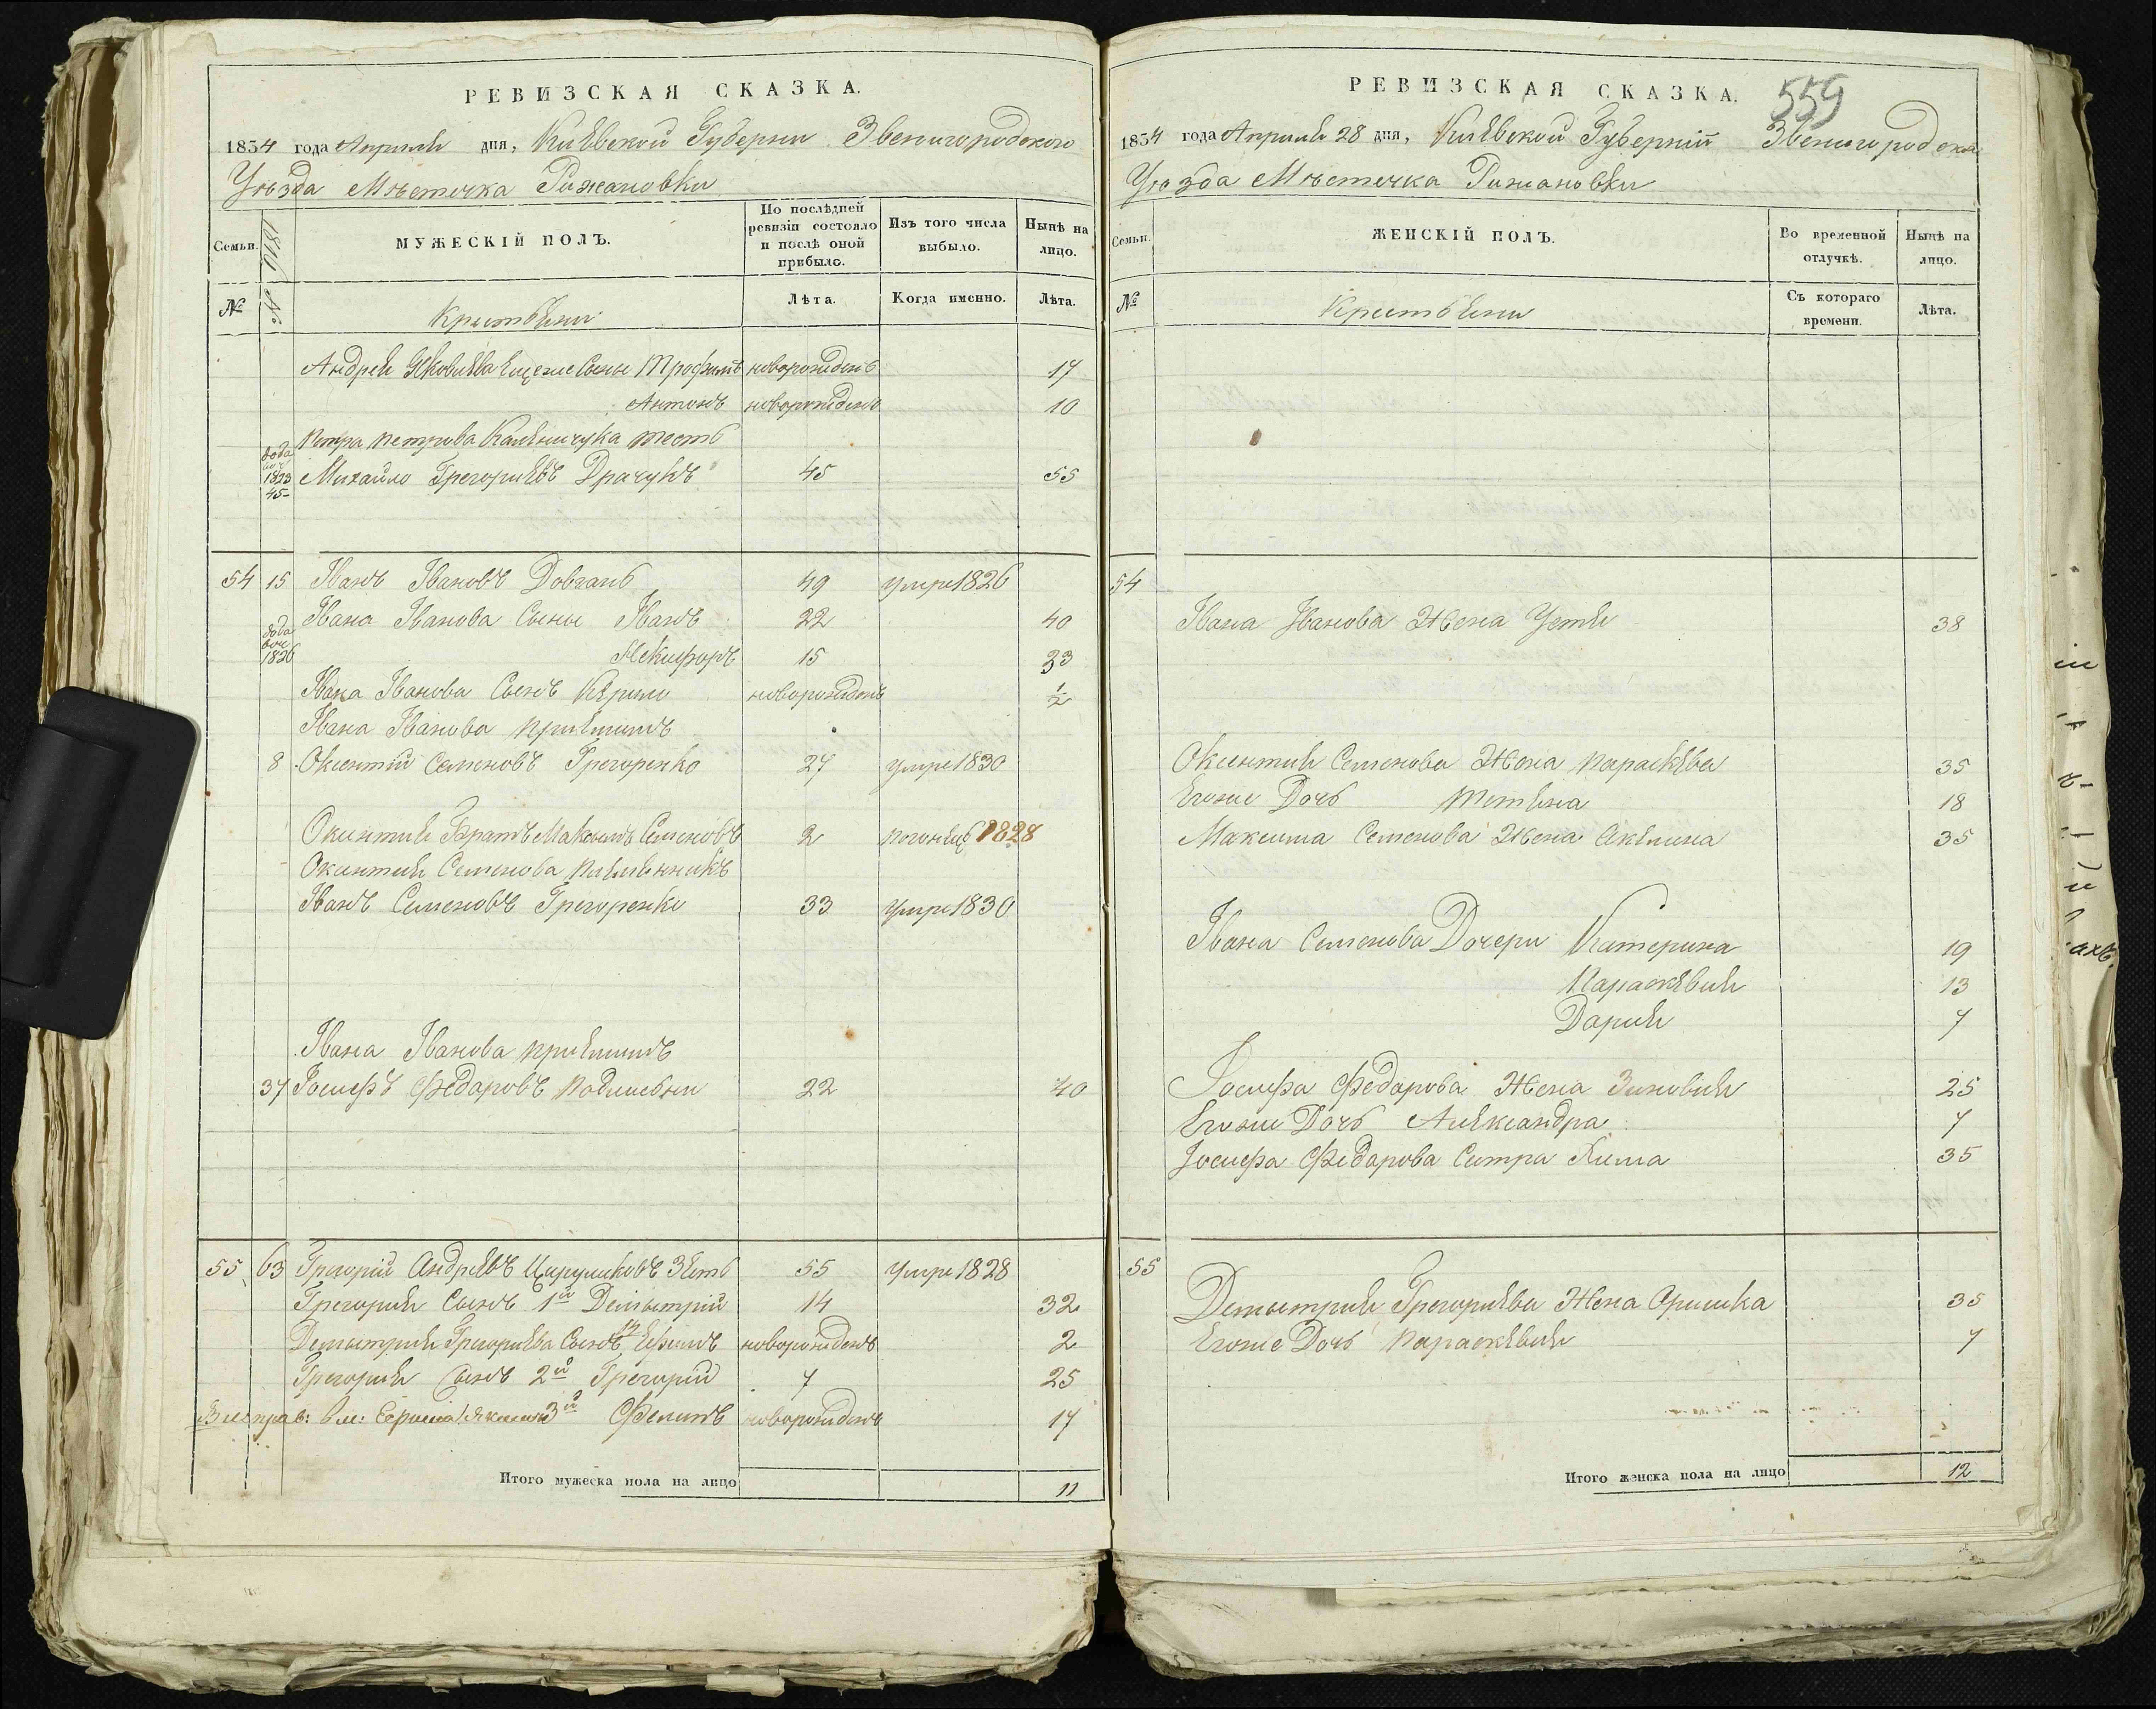 РЕВИЗСКАЯ СКАЗКА.
1834 года Апреля дня, Киевской Губернии Звенигородского
Уѣзда Мѣстечка Рижановки
Семьи. 1816 МУЖЕСКІЙ ПОЛЪ. По послѣдней ревизіи состояло и послѣ оной прибыло. Изъ того числа выбыло. Нынѣ на лицо.
№ № Крестьяни Лѣта. Когда именно. Лѣта.
Андрея Яковлева Сыны Трофимъ новорожденъ 17
Антонъ новорожденъ 10
Петра Петрова тесть
1823 45 Михайло Грегориевъ Драчукъ 45 55
54 15 Іванъ Івановъ Довгань 49 умре 1826
Івана Іванова Сыны Іванъ 22 40
1826 Никифоръ 15 33
Івана Іванова Сынъ Кирило новорожденъ 1/2
Івана Іванова приемышъ
8 Оксентій Семеновъ Грегоренко 27 умре 1830
Оксентия Братъ Максимъ Семеновъ 2 1828
Оксентия Семенова племянникъ
Іванъ Семеновъ Грегоренко 33 умре 1830
Івана Іванова приемышъ
37 Іосифъ Федаровъ 22 40
55 63 Грегорій Андреевъ Цируликовъ Зять 55 умре 1828
Грегория Сынъ 1й Демытрій 14 32
Демытрия Грегориева Сынъ Ефимъ новорожденъ 2
Грегория Сынъ 2й Грегорій 7 25
3й новорожденъ 17
Итого мужеска пола на лицо 11
РЕВИЗСКАЯ СКАЗКА.
559
1834 года Апреля 28 дня, Киевской Губерній Звенигородска
Уѣзда Мѣстечка Рижановки
Семьи. ЖЕНСКІЙ ПОЛЪ. Во временной отлучкѣ. Нынѣ на лицо.
№ Крестьяни Съ котораго времени. Лѣта.
54
Івана Іванова Жена Устя 38
Оксентия Семенова Жена Параскева 35
Егоже Дочь Тетяна 18
Максима Семенова Жена Акелина 35
Івана Семенова Дочери Катерина 19
Параскевия 13
Дария 7
Іосифа Федорова Жена Зиновия 25
Егоже Дочь Александра 7
Іосифа Федарова Сестра Хима 35
55
Демытрия Грегориева Жена Оришка 35
Егоже Дочь Параскевия 7
Итого женска пола на лицо 12